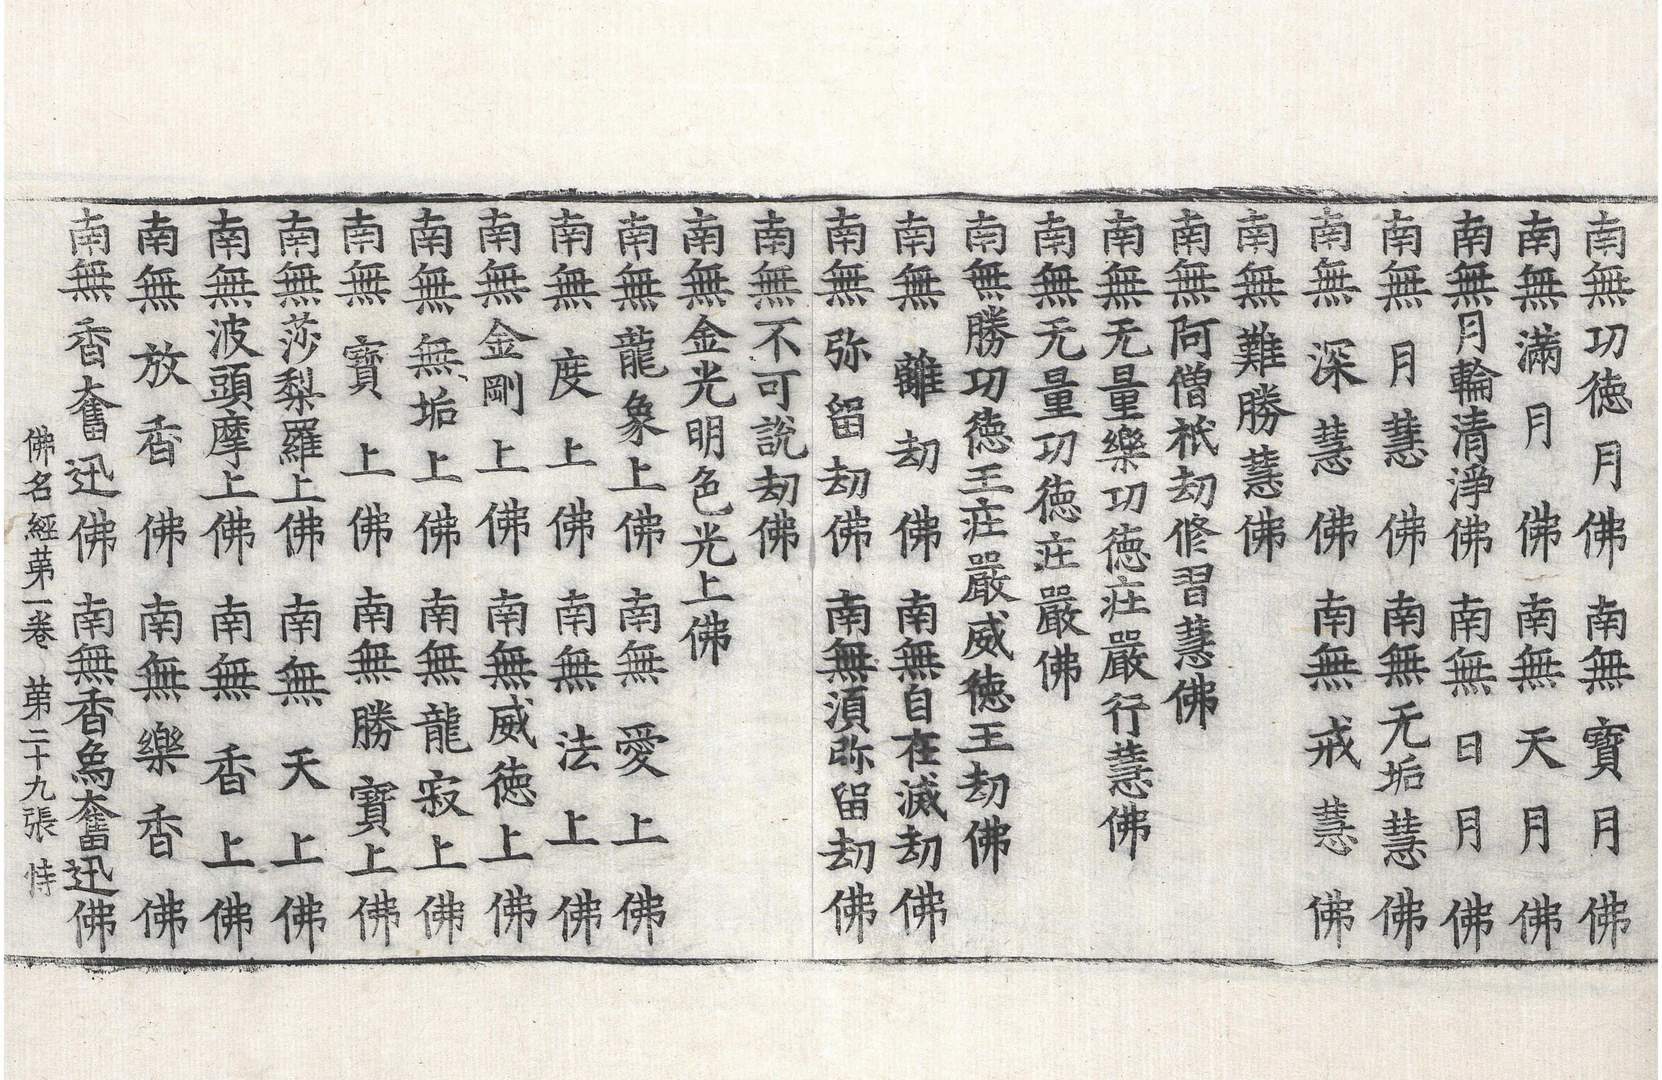 南無功德月佛 南無寶月佛
南無滿月佛 南無天月佛
南無月輪清淨佛 南無日月佛
南無月慧佛 南無无垢慧佛
南無深慧佛 南無戒慧佛
南無難勝慧佛
南無阿僧祇劫修習慧佛
南無无量樂功德庄嚴行慧佛
南無无量功德庄嚴佛
南無勝功德王庄嚴威德王劫佛
南無離劫佛 南無自在滅劫佛
南無弥留劫佛 南無湏弥留劫佛
南無不可說劫佛
南無金光明色光上佛
南無龍象上佛 南無愛上佛
南無度上佛 南無法上佛
南無金剛上佛 南無威德上佛
南無無垢上佛 南無龍寂上佛
南無寶上佛 南無勝寶上佛
南無莎梨羅上佛 南無天上佛
南無波頭摩上佛 南無香上佛
南無放香佛 南無樂香佛
南無香奮迅佛 南無香象奮迅佛
佛名經苐一卷 苐二十九張 恃